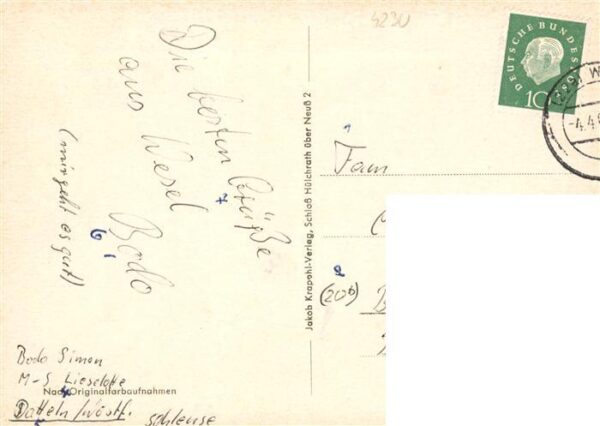 4230
Die besten Grüße
aus Wesel
Bodo
(mir geht es gut)
Bodo Simon
M-S Lieselotte
Nach Originalfarbaufnahmen
Datteln/Westf.
schleuse
Jakob Krapohl-Verlag, Schloß Hülchrath über Neuß 2
DEUTSCHE BUNDESPOST
10
W
-4.4.6
Fam
(20b)